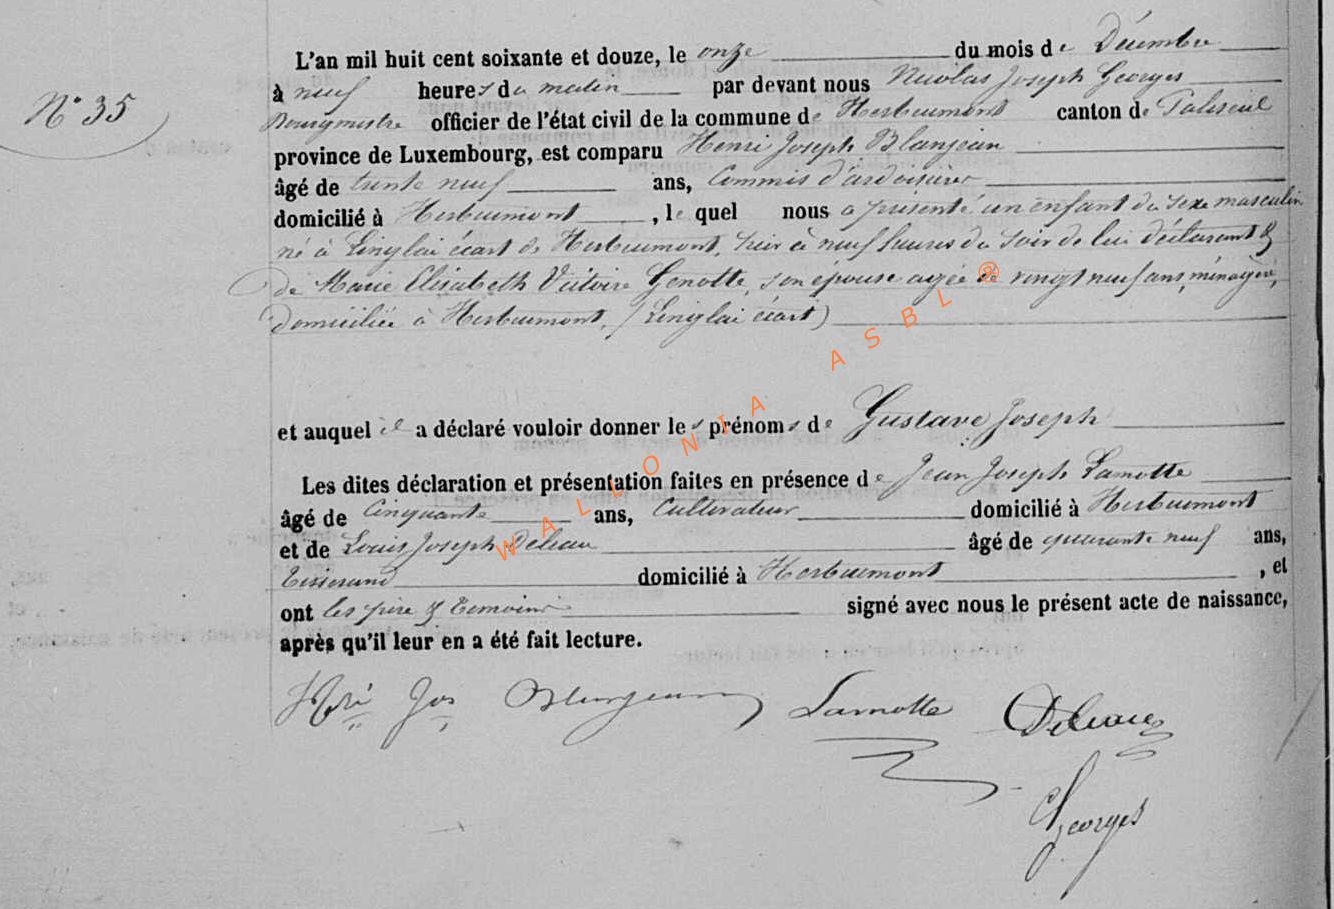 L'an mil huit cent soixante et douze, le onze du mois de Décembre
N° 35
à neuf heures du matin par devant nous Nicolas Joseph Georges
Bourgmestre officier de l'état civil de la commune de Herbeumont canton de Paliseul
province de Luxembourg, est comparu Henri Joseph Blanjean
âgé de trente neuf ans, Commis d'ardoisière
domicilié à Herbeumont, le quel nous a présenté un enfant du sexe masculin
né à Linglai écart de Herbeumont, hier à neuf heures du soir de lui déclarant &
de Marie Elisabeth Victoire Genotte, son épouse agée de vingt neuf ans, ménagère,
domiciliée à Herbeumont, (Linglai écart)
et auquel il a déclaré vouloir donner les prénoms de Gustave Joseph
Les dites déclaration et présentation faites en présence de Jean Joseph Lamotte
âgé de Cinquante ans, Cultivateur domicilié à Herbeumont
et de Louis Joseph Deleau âgé de quarante neuf ans,
Tisserand domicilié à Herbeumont, et
ont les père & temoins signé avec nous le présent acte de naissance,
après qu'il leur en a été fait lecture.
Hri Jos Blanjean Lamotte Deleau
Georges
WALLONIA ASBL ®